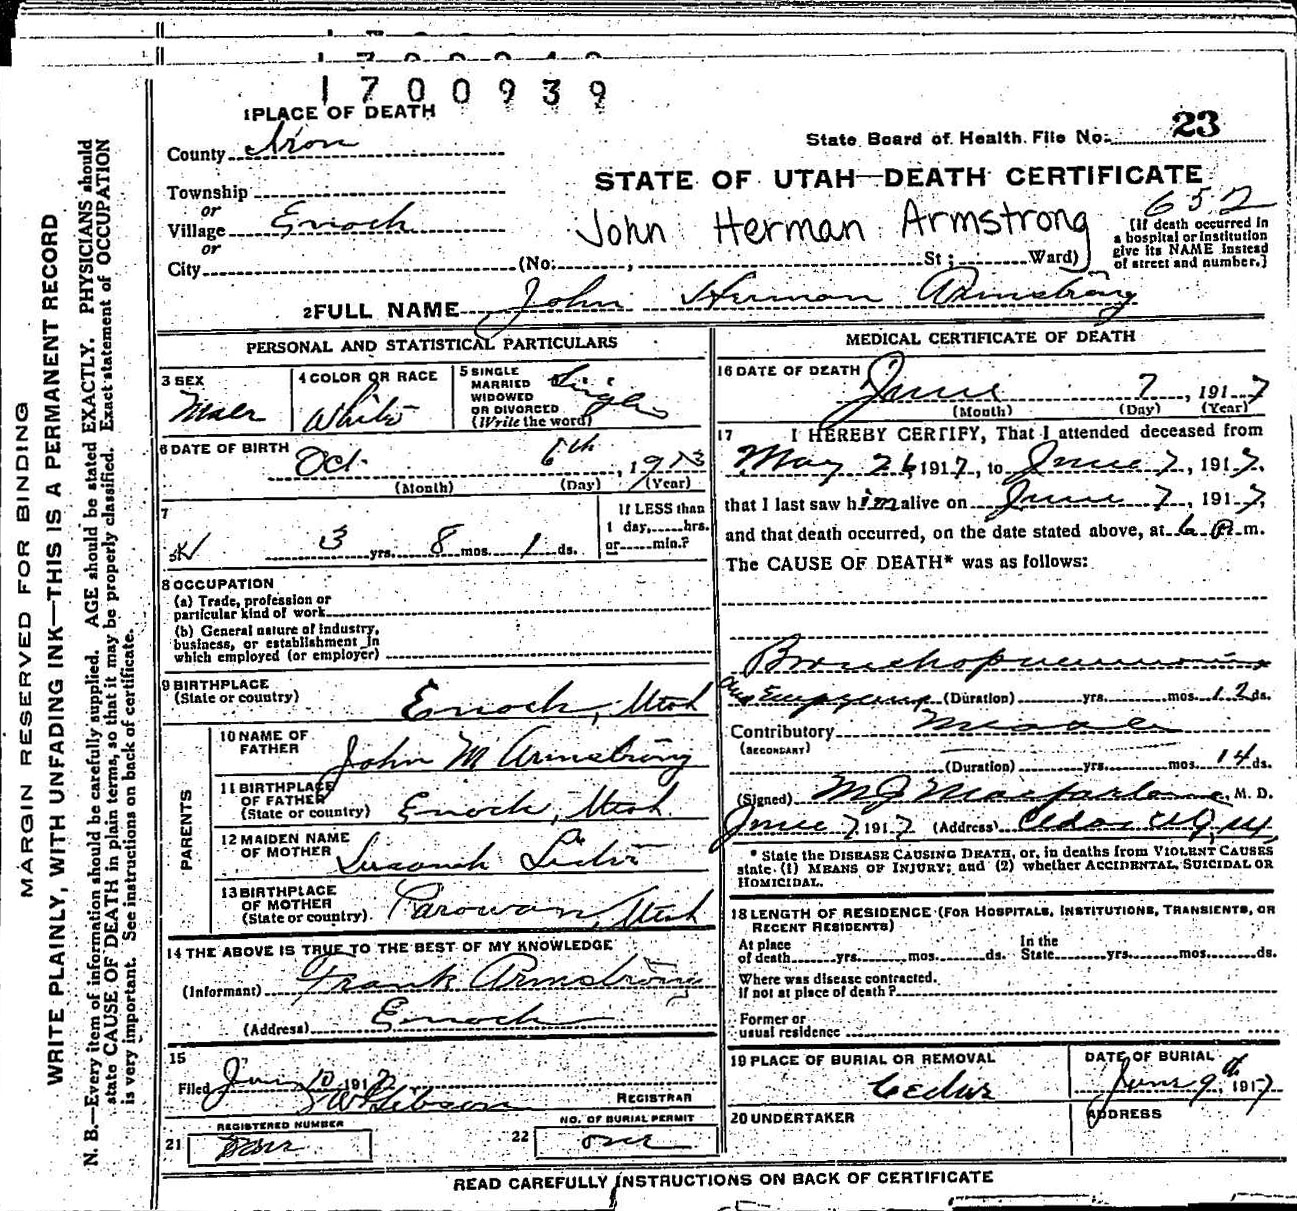 1700939
1 PLACE OF DEATH
State Board of Health File No. 23
County Iron
STATE OF UTAH—DEATH CERTIFICATE
Township
or
652
Village Enoch
John Herman Armstrong
[If death occurred in
a hospital or institution
give its NAME instead
of street and number.]
or
City (No: , St ; Ward)
2 FULL NAME John Herman Armstrong
PERSONAL AND STATISTICAL PARTICULARS
3 SEX
Male
4 COLOR OR RACE
White
5 SINGLE
MARRIED
WIDOWED
OR DIVORCED
(Write the word)
Single
6 DATE OF BIRTH Oct. 6th, 1913
(Month) (Day) (Year)
7
3 yrs. 8 mos. 1 ds.
If LESS than
1 day, hrs.
or min.?
8 OCCUPATION
(a) Trade, profession or
particular kind of work
(b) General nature of industry,
business, or establishment in
which employed (or employer)
9 BIRTHPLACE
(State or country) Enoch, Utah
PARENTS
10 NAME OF
FATHER John M Armstrong
11 BIRTHPLACE
OF FATHER
(State or country) Enoch, Utah.
12 MAIDEN NAME
OF MOTHER
13 BIRTHPLACE
OF MOTHER
(State or country) Parowan, Utah
14 THE ABOVE IS TRUE TO THE BEST OF MY KNOWLEDGE
(Informant) Frank Armstrong
(Address) Enoch
15
Filed Jun 10 1917
REGISTRAR
REGISTERED NUMBER
21
NO. OF BURIAL PERMIT
22 one
MEDICAL CERTIFICATE OF DEATH
16 DATE OF DEATH June 7, 1917
(Month) (Day) (Year)
17 I HEREBY CERTIFY, That I attended deceased from
May 26, 1917, to June 7, 1917,
that I last saw him alive on June 7, 1917,
and that death occurred, on the date stated above, at 6 P.m.
The CAUSE OF DEATH* was as follows:
Bronchopneumonia
and Empyema (Duration) yrs. mos. 12 ds.
Contributory Measles
(SECONDARY)
(Duration) yrs. mos. 14 ds.
(Signed) M J Macfarlane, M. D.
June 7, 1917 (Address) Cedar City, Ut
* State the DISEASE CAUSING DEATH, or, in deaths from VIOLENT CAUSES
state (1) MEANS OF INJURY; and (2) whether ACCIDENTAL, SUICIDAL OR
HOMICIDAL.
18 LENGTH OF RESIDENCE (FOR HOSPITALS, INSTITUTIONS, TRANSIENTS, OR
RECENT RESIDENTS)
At place
of death yrs. mos. ds.
In the
State yrs. mos. ds.
Where was disease contracted.
if not at place of death?
Former or
usual residence
19 PLACE OF BURIAL OR REMOVAL
Cedar
DATE OF BURIAL
June 9th, 1917
20 UNDERTAKER
ADDRESS
READ CAREFULLY INSTRUCTIONS ON BACK OF CERTIFICATE
MARGIN RESERVED FOR BINDING
WRITE PLAINLY, WITH UNFADING INK—THIS IS A PERMANENT RECORD
N. B.—Every item of information should be carefully supplied. AGE should be stated EXACTLY. PHYSICIANS should
state CAUSE OF DEATH in plain terms, so that it may be properly classified. Exact statement of OCCUPATION
is very important. See instructions on back of certificate.